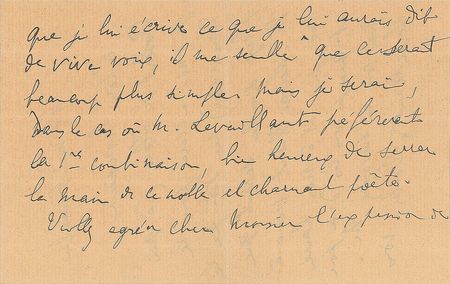 que je lui écrive ce que je lui aurais dit
de vive voix, il me semble que ce serait
beaucoup plus simple. Mais je serai,
Dans le cas où M. Levaillant préférerait
la 1re combinaison, bien heureux de serrer
la main de ce noble et charmant poète.
Veuillez agréer cher Monsieur l'expression de